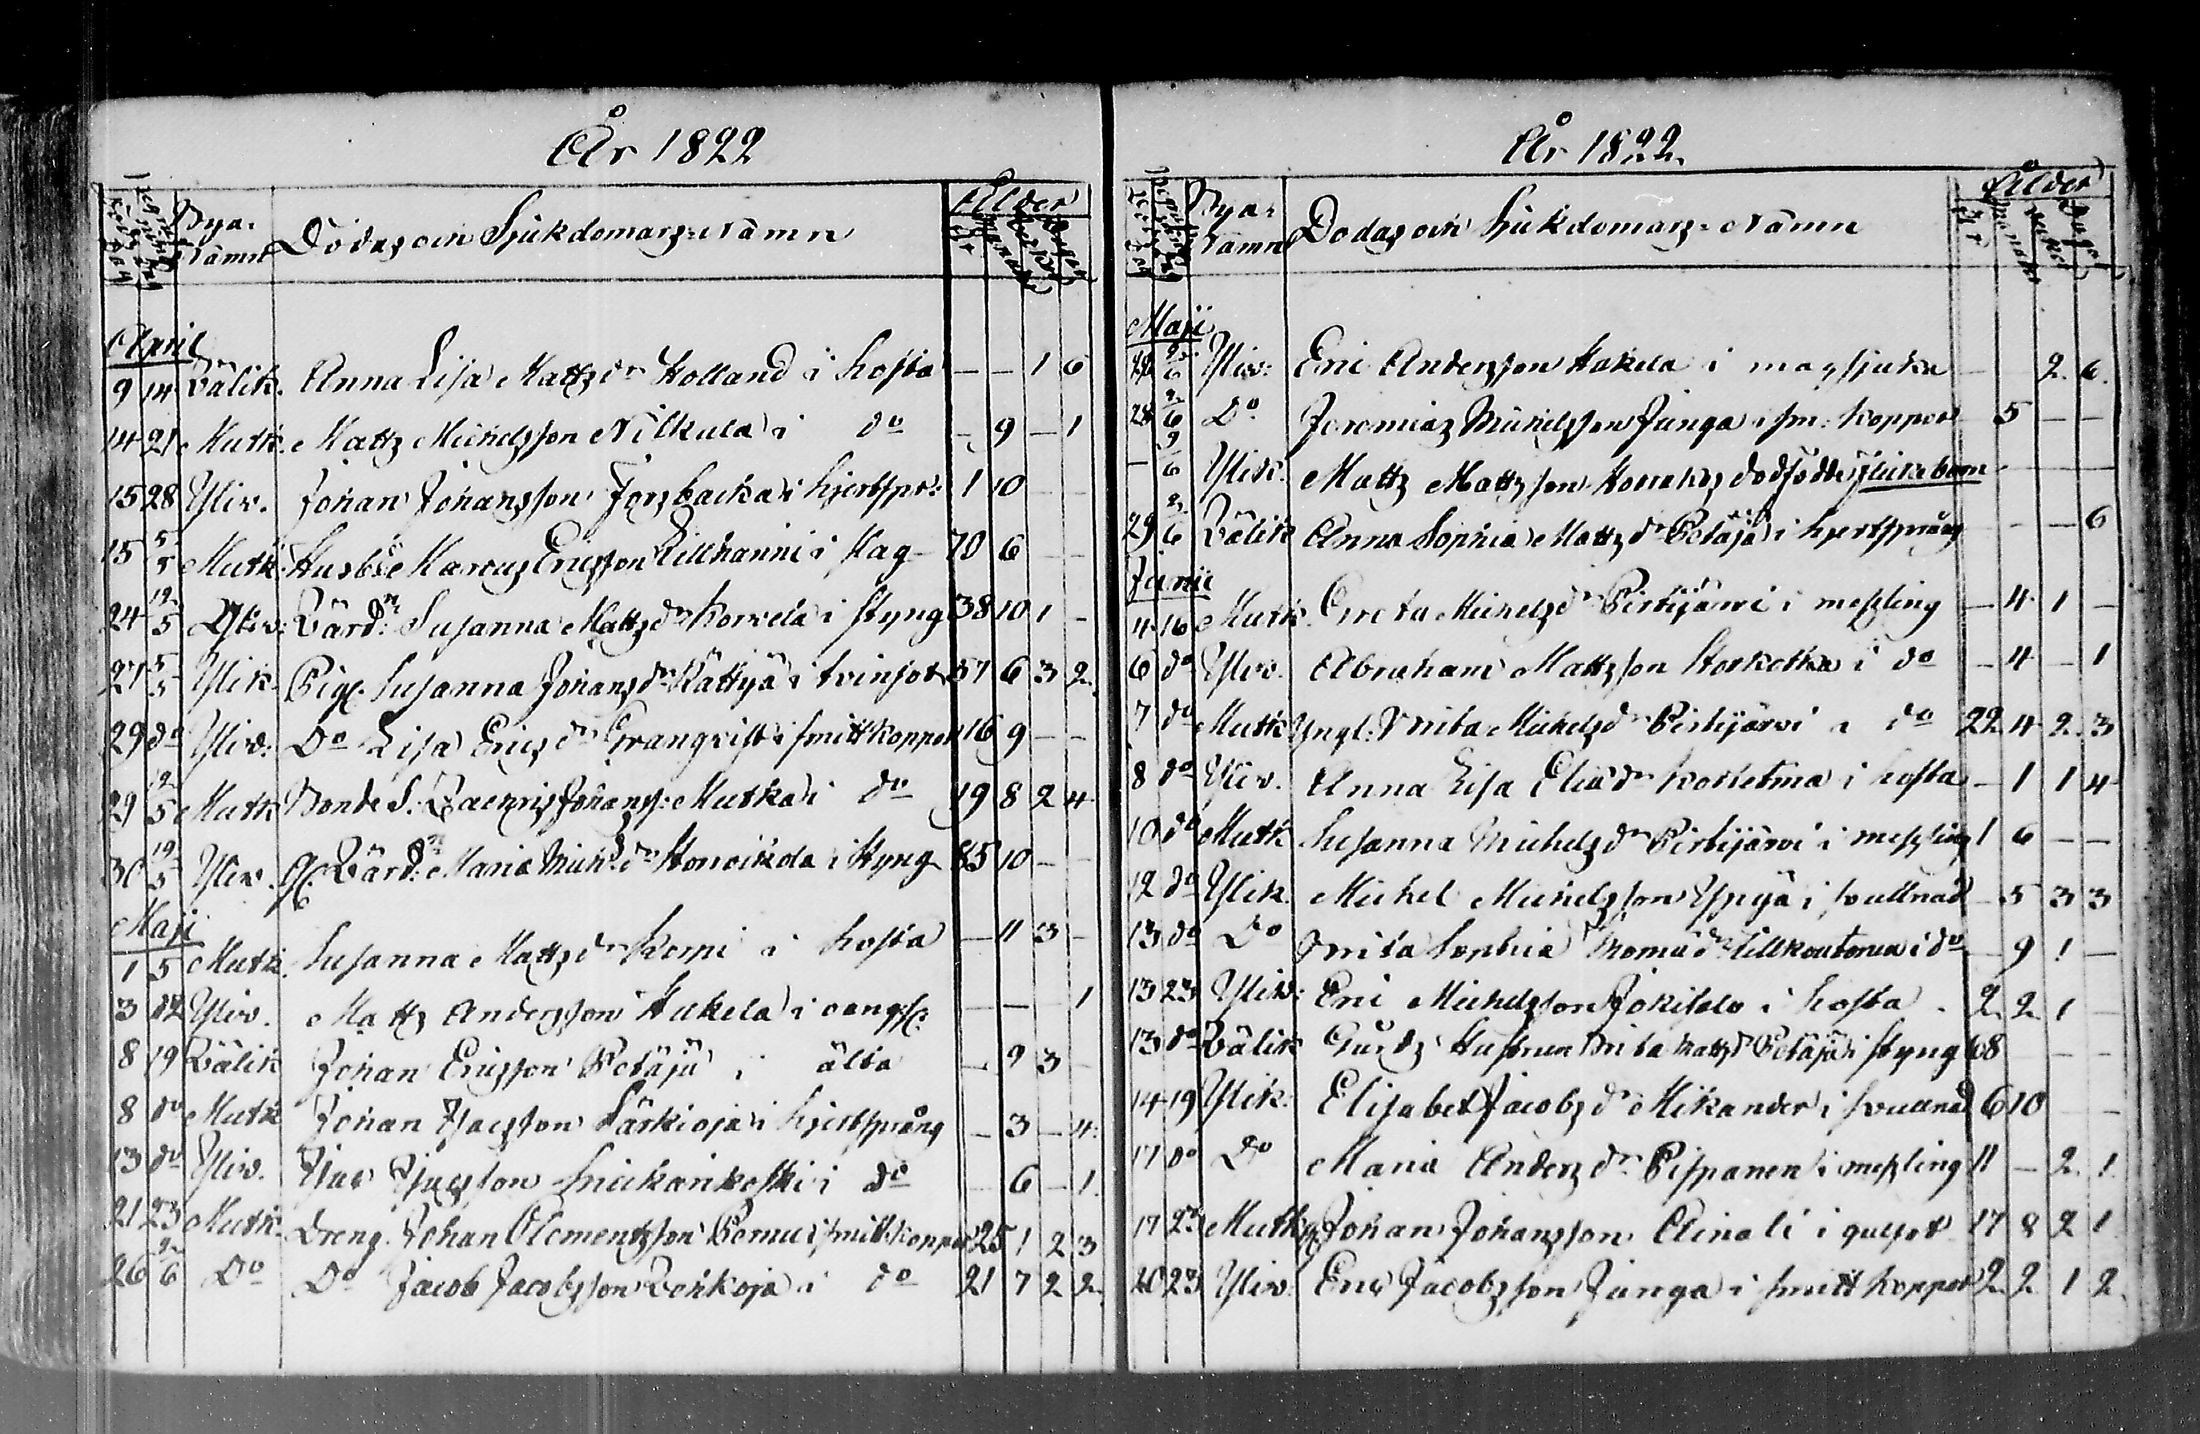 År 1822
Bya- namn Dödas och Sjukdomars Namn Ålder
April
9 14 Välik. Anna Lisa Mattsdr Holland i hosta — — 1 6
14 21 Mutk. Matts Michelsson Nilkula i do — 9 — 1
15 28 Yliv. Johan Johansson Forsbacka i hjertspr: 1 10 — —
15 5/5 Mutk. Husb: Marcus Ericsson Tillhanni i Mag 70 6 — —
24 12/5 Yliv. Värd: Susanna Mattsdr Korvela i styng 38 10 1 —
27 5/5 Ylik. Pig. Susanna Johansdr Kättyä i tvinsot 57 6 3 2
29 do Yliv: Do Lisa Ericsdr Granqvist i smittkoppor 16 9 — —
29 12/5 Mutk Bonde S. Zachris Johans: Mutka i do 19 8 2 4
30 12/5 Yliv. G. Värd: Maria Mich:dr Honcikola i styng 85 10 — —
Maji
1 5 Mutk. Susanna Mattsdr Kopsi i hosta — 11 3 —
3 12 Yliv. Matts Andersson Hakela i — — — 1
8 19 Välik Johan Ericsson Petäjä i älta — 9 3 —
8 do Mutk Johan Isacsson Särkioja i hjertsprång — 3 — 4
13 do Yliv. Isac Isacsson Snickarikoski i do — 6 — 1
21 23 Mutk. Dreng. Johan Clementsson Pomus i smittkoppor 25 1 2 3
26 2/6 Do Do Jacob Jacobsson Verkoja i do 21 7 2 2
År 1822.
Bya- namn Dödas och Sjukdomars Namn Ålder
Maji
2/6 Yliv: Eric Andersson Hakela i magsjuka 2 6
28 2/6 Do Jeremias Michelsson Junga i sm: koppor 5 — —
— 9/6 Ylik. Matts Mattsson dödfödde flickebarn — — —
29 2/6 Välik Anna Sophia Mattsdr Petäjä i hjertsprång — — — 6
Junii
4 16 Mutk. Greta Michelsdr Pirtijärvi i messling — 4 1 —
6 do Yliv. Abraham Mattsson Koskotka i do — 4 — 1
7 do Mutk Yngl: Brita Michelsdr Pirtijärvi i do 22 4 2 3
8 do Yliv. Anna Lisa Eliædr i hosta — 1 1 4
10 do Mutk Susanna Michelsdr Pirtijärvi i messling 1 6 — —
12 do Ylik. Michel Michelsson Yspyä i svullnad — 5 3 3
13 do Do Brita Sophia Thomædr i do — 9 1 —
13 23 Yliv: Eric Michelsson Jokisalo i hosta 2 2 1 —
13 do Välik Gårds Hustrun Brita Mattsdr Petäjä i styng 68 — —
14 19 Ylik. Elisabet Jacobsdr Mikander i svullnad 6 10 — —
17 do Do Maria Andersdr Pispanen i messling 11 — 2 1
17 23 Mutk Johan Johansson Ainali i gulsot 17 8 2 1
20 23 Yliv. Eric Jacobsson Junga i smittkoppor 2 2 1 2